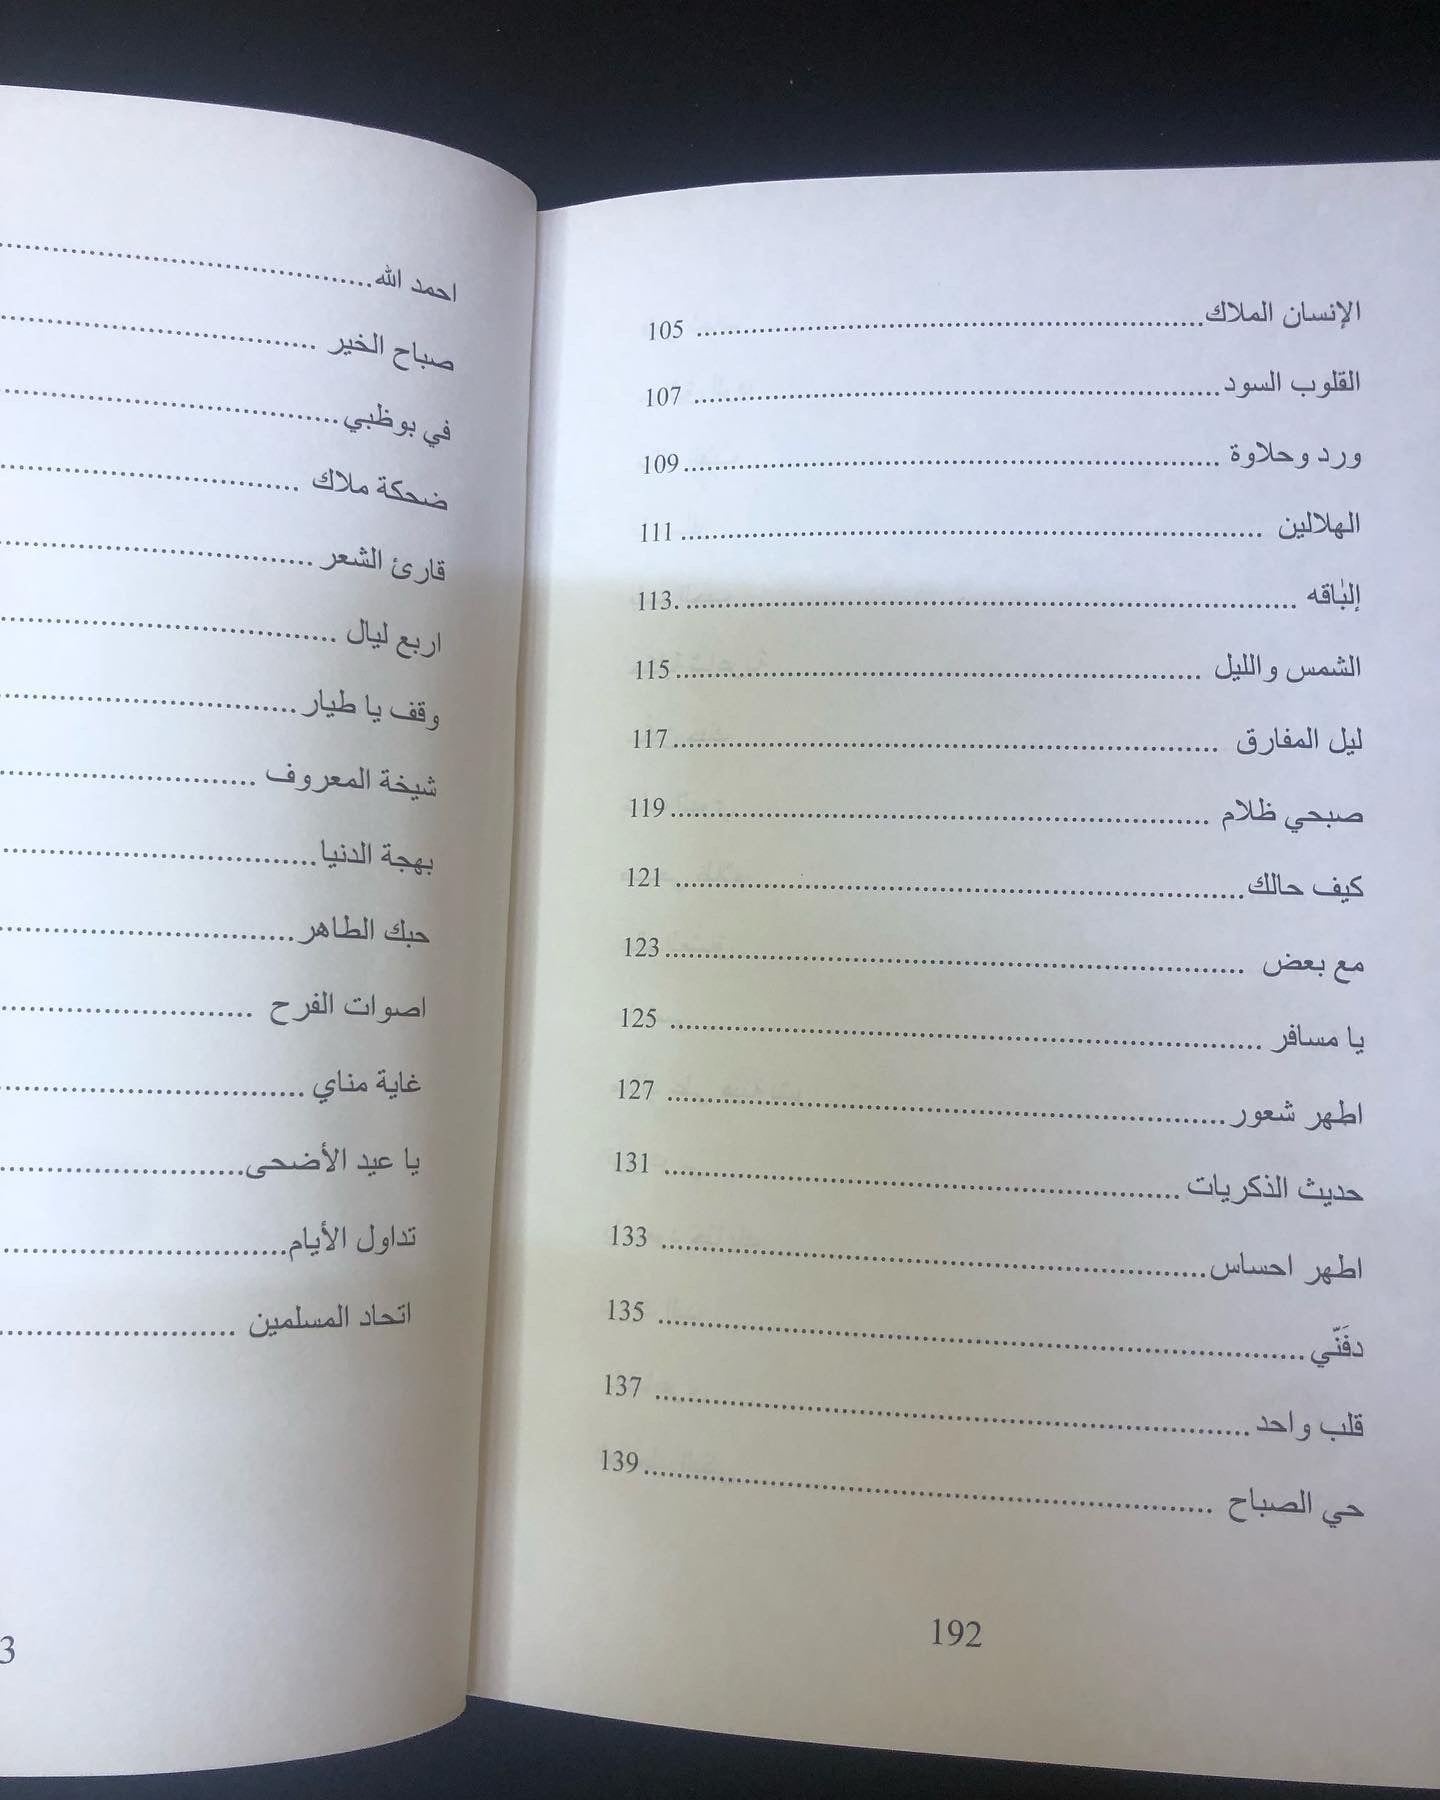 الإنسان الملاك........................ 105
القلوب السود........................ 107
ورد وحلاوة ........................ 109
الهلالين ........................ 111
إلباقه ........................ 113
الشمس والليل ........................ 115
ليل المفارق ........................ 117
صبحي ظلام ........................ 119
كيف حالك........................ 121
مع بعض ........................ 123
يا مسافر ........................ 125
اطهر شعور........................ 127
حديث الذكريات ........................ 131
اطهر احساس........................ 133
دفَنّي........................ 135
قلب واحد........................ 137
حي الصباح ........................ 139
192
احمد الله........................
صباح الخير ........................
في بوظبي........................
ضحكة ملاك ........................
قارئ الشعر ........................
اربع ليال ........................
وقف يا طيار........................
شيخة المعروف ........................
بهجة الدنيا........................
حبك الطاهر........................
اصوات الفرح ........................
غاية مناي ........................
يا عيد الأضحى........................
تداول الأيام........................
اتحاد المسلمين ........................
3